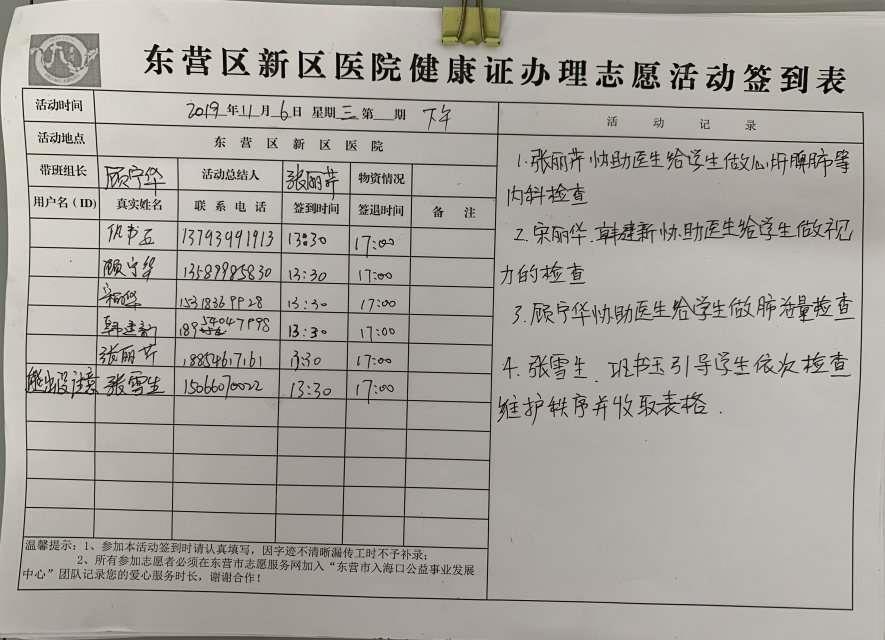 东营区新区医院健康证办理志愿活动签到表
活动时间 2019年11月6日 星期三 第 期 下午
活动地点 东营区新区医院
带班组长 顾宁华 活动总结人 张丽芹 物资情况
用户名(ID) 真实姓名 联系电话 签到时间 签退时间 备注
13793991913 13:30 17:00
顾宁华 13589985830 13:30 17:00
15318369928 13:30 17:00
韩建新 13:30 17:00
张丽芹 18854617161 13:30 17:00
张雪生 15066070022 13:30 17:00
温馨提示:1、参加本活动签到时请认真填写,因字迹不清晰漏传工时不予补录;
2、所有参加志愿者必须在东营市志愿服务网加入“东营市入海口公益事业发展
中心”团队记录您的爱心服务时长,谢谢合作!
活动记录
1.张丽芹协助医生给学生做心肝脾肺等
内科检查
2.宋丽华.韩建新协助医生给学生做视
力的检查
3.顾宁华协助医生给学生做肺活量检查
4.张雪生.书玉引导学生依次检查
维护秩序并收取表格.